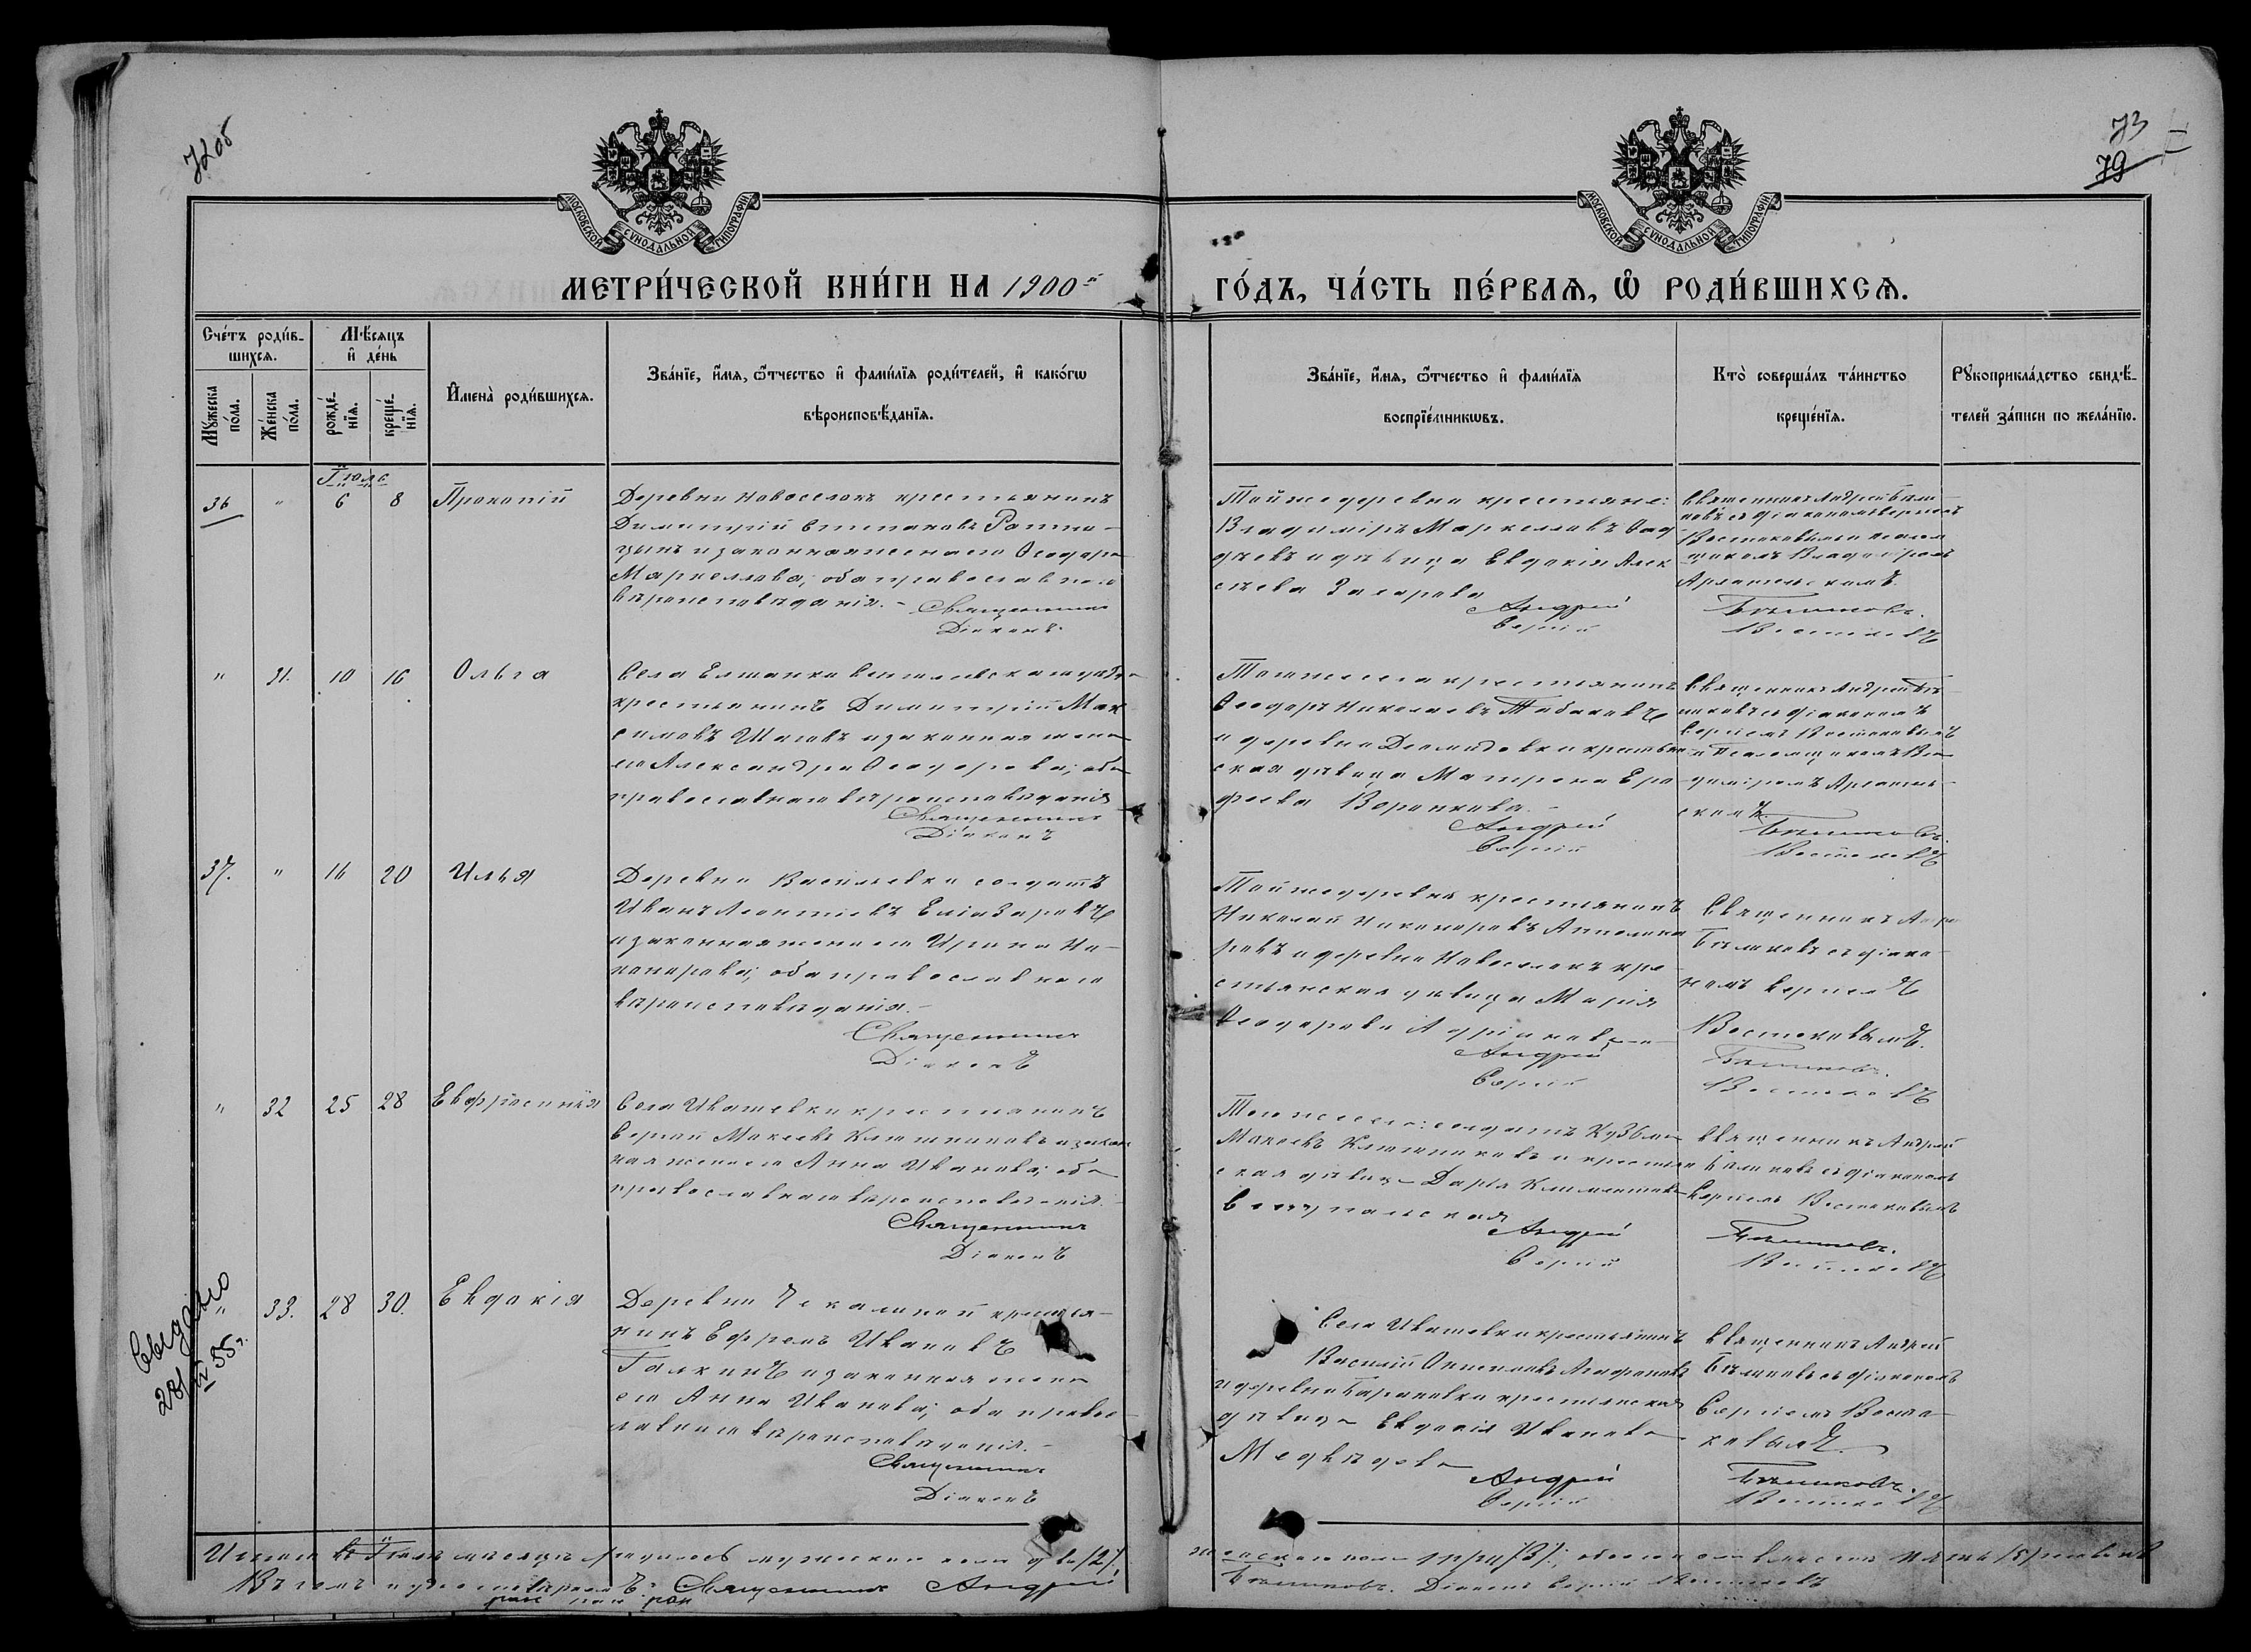 72об
73
79
МОСКОВСКОЙ СѴНОДАЛЬНОЙ ТИПОГРАФІИ
МОСКОВСКОЙ СѴНОДАЛЬНОЙ ТИПОГРАФІИ
МЕТРИ́ЧЕСКОЙ КНИ́ГИ НА 1900й ГО́ДЪ, ЧА́СТЬ ПЕ́РВАѦ, Ѡ҆ РОДИ́ВШИХСѦ.
Сче́тъ роди́в-
шихсѧ.
Мꙋ́жеска
по́ла.
Же́нска
по́ла.
Мѣ́сѧцъ
и҆ де́нь
рожде́-
нїѧ.
креще́-
нїѧ.
И҆мена̀ роди́вшихсѧ.
Зва́нїе, и҆́мѧ, ѻ҆́тчество и҆ фами́лїѧ роди́телей, и҆ како́гѡ
вѣроисповѣ́данїѧ.
Зва́нїе, и҆́мѧ, ѻ҆́тчество и҆ фами́лїѧ
воспрїе́мникѡвъ.
Кто̀ соверша́лъ та́инство
креще́нїѧ.
Рꙋкоприкла́дство свидѣ́-
телей за́писи по жела́нїю.
Іюль
36 " 6 8 Прокопій
Деревни Новоселокъ крестьянинъ
Димитрій Степановъ
и законная жена его Ѳеодора
Маркеллова; оба православнаго
вѣроисповѣданія. - Священникъ
Діаконъ
Тойже деревни крестьяне:
Владиміръ Маркелловъ
и дѣвица Евдокія Алек
сѣева Захарова
Андрей
Сергій
Священникъ Андрей Бѣли-
ковъ съ діакономъ Сергіемъ
Востоковымъ и псалом
щикомъ Владиміромъ
Архангельскимъ.
Бѣликовъ.
Востоковъ
" 31. 10 16 Ольга
Села Елшанки
крестьянинъ Димитрій Мак
симовъ Шаговъ и законная жена
его Александра Ѳеодорова; оба
православнаго вѣроисповѣданія
Священникъ
Діаконъ
Тогоже села крестьянинъ
Ѳеодоръ Николаевъ Табаковъ
и деревни Демидовки крестьян
ская дѣвица Матрона Еро
феева Воронкова. -
Андрей
Сергій
Священникъ Андрей Бѣ-
ликовъ съ діакономъ
Сергіемъ Востоковымъ
и Псаломщикомъ Вла
диміромъ Архангель-
скимъ.
Бѣликовъ.
Востоковъ
37. " 16 20 Илья
Деревни Васильевки солдатъ
Иванъ Леонтіевъ Еліазаровъ
и законная жена его Ирина Ни-
канорова; оба православнаго
вѣроисповѣданія. -
Священникъ
Діаконъ
Тойже деревни крестьянинъ
Николай Никаноровъ Апполина
ровъ и деревни Новоселокъ кре-
стьянская дѣвица Марія
Ѳеодорова Адріанова
Андрей
Сергій
Священникъ Андрей
Бѣликовъ съ діако-
номъ Сергіемъ
Востоковымъ.
Бѣликовъ.
Востоковъ
" 32 25 28 Евфросинія
Села Ивашевки крестьянинъ
Сергій Моисеевъ и закон
ная жена его Анна Иванова; оба
православнаго вѣроисповѣданія. -
Священникъ
Діаконъ
Тогоже села: солдатъ Кузьма
Моисеевъ и крестьян
ская дѣвица Дарья Климентова
Андрей
Сергій
Священникъ Андрей
Бѣликовъ съ діакономъ
Сергіемъ Востоковымъ
Бѣликовъ.
Востоковъ
" 33. 28 30. Евдокія
Деревни Чекалиной крестья-
нинъ Ефремъ Ивановъ
Галкинъ и законная жена
его Анна Иванова; оба право-
славнаго вѣроисповѣданія. -
Священникъ
Діаконъ
Села Ивашевки крестьянинъ
Василій Агафоновъ
и деревни Барановки крестьянская
дѣвица Евдокія Иванова
Медвѣдева
Андрей
Сергій
Священникъ Андрей
Бѣликовъ съ діакономъ
Сергіемъ Восто-
ковымъ.
Бѣликовъ.
Востоковъ
28/IV 55г.
Итого въ Іюлѣ мѣсяцѣ родилось мужескаго пола два /2/, женскаго пола три /3/; обоего пола вмѣстѣ пять /5/ человѣкъ
Въ чемъ и удостовѣряемъ: Священникъ Андрей Бѣликовъ. Діаконъ Сергій Востоковъ